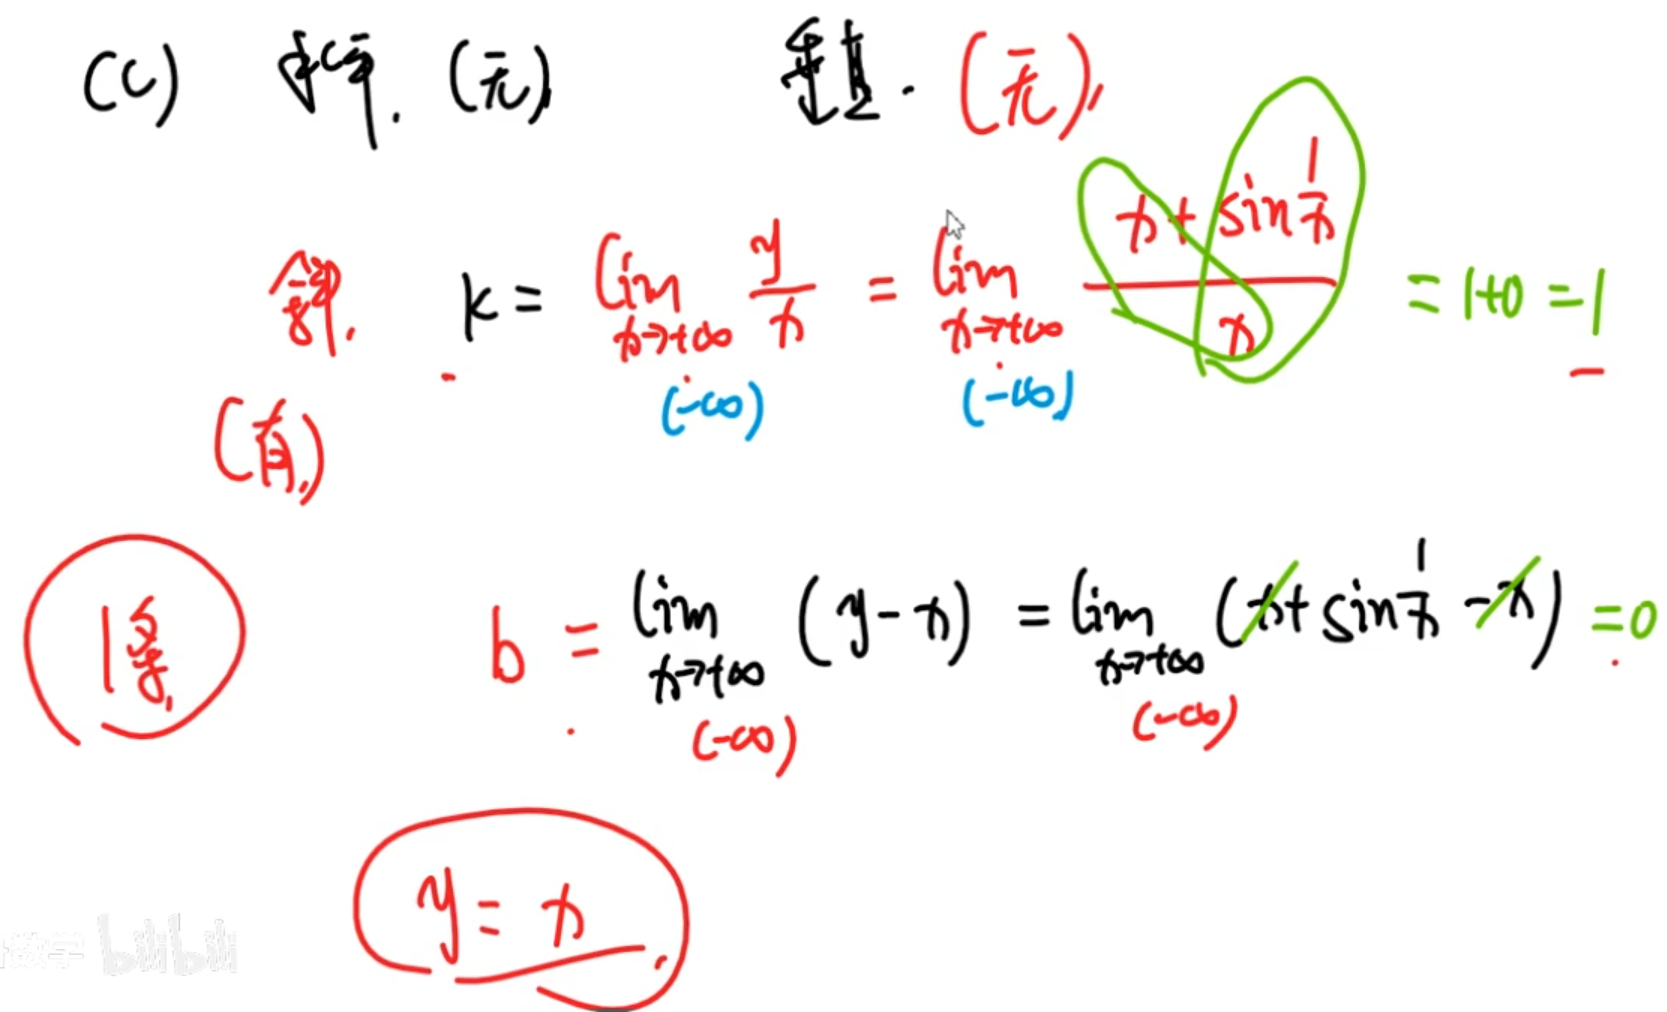 (C) 水平. (无), 垂直. (无),
斜. k = lim x→+∞ (-∞) y/x = lim x→+∞ (-∞) (x + sin 1/x)/x = 1+0 = 1
(有.)
1条. b = lim x→+∞ (-∞) (y - x) = lim x→+∞ (-∞) (x + sin 1/x - x) = 0
y = x
数学 bilibili